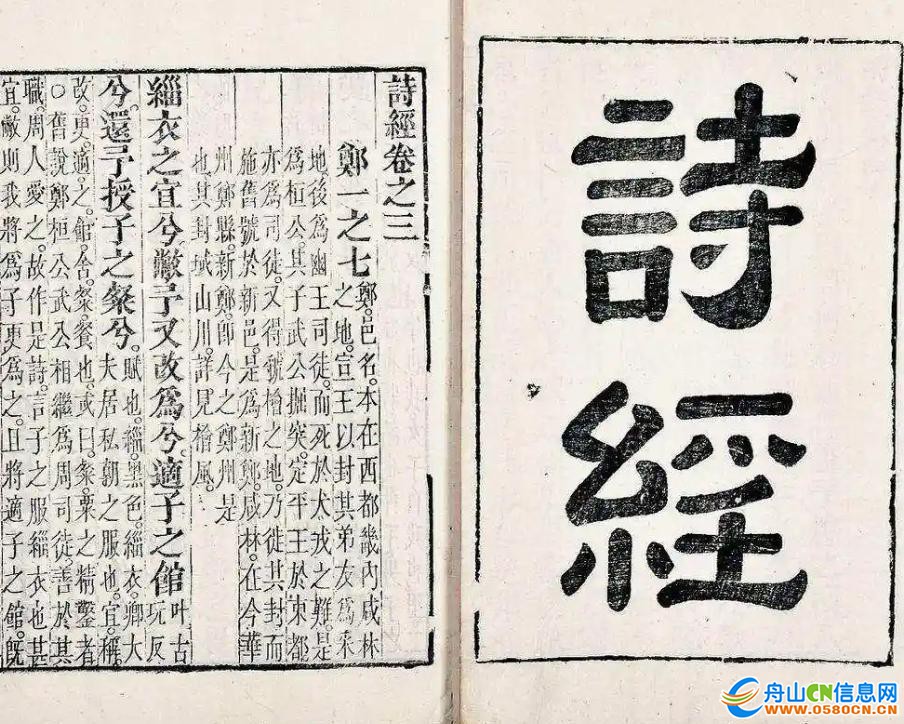 詩經
詩經卷之三
鄭一之七
鄭。邑名。本在西都畿內咸林
之地。宣王以封其弟友爲采
地後爲幽王司徒。而死於犬戎之難。是
爲桓公。其子武公掘突。定平王於東都
亦爲司徒。又得虢檜之地。乃徙其封而
施舊號於新邑。是爲新鄭。咸林。在今華
州鄭縣。新鄭。卽今之鄭州是
也。其封域山川。詳見檜風。
緇衣之宜兮。敝予又改爲兮。適子之館
叶古
玩反
兮。還予授子之粲兮。
賦也。緇。黑色。緇衣。卿大
夫居私朝之服也。宜。稱。
改。更。適。之。館。舍。粲。餐也。或曰。粲。粟之精鑿者
○舊說鄭桓公武公相繼爲周司徒。善於其
職。周人愛之。故作是詩。言子之服緇衣也甚
宜。敝則我將爲子更爲之。且將適子之館。旣
舟山CN信息网
www.0580CN.CN